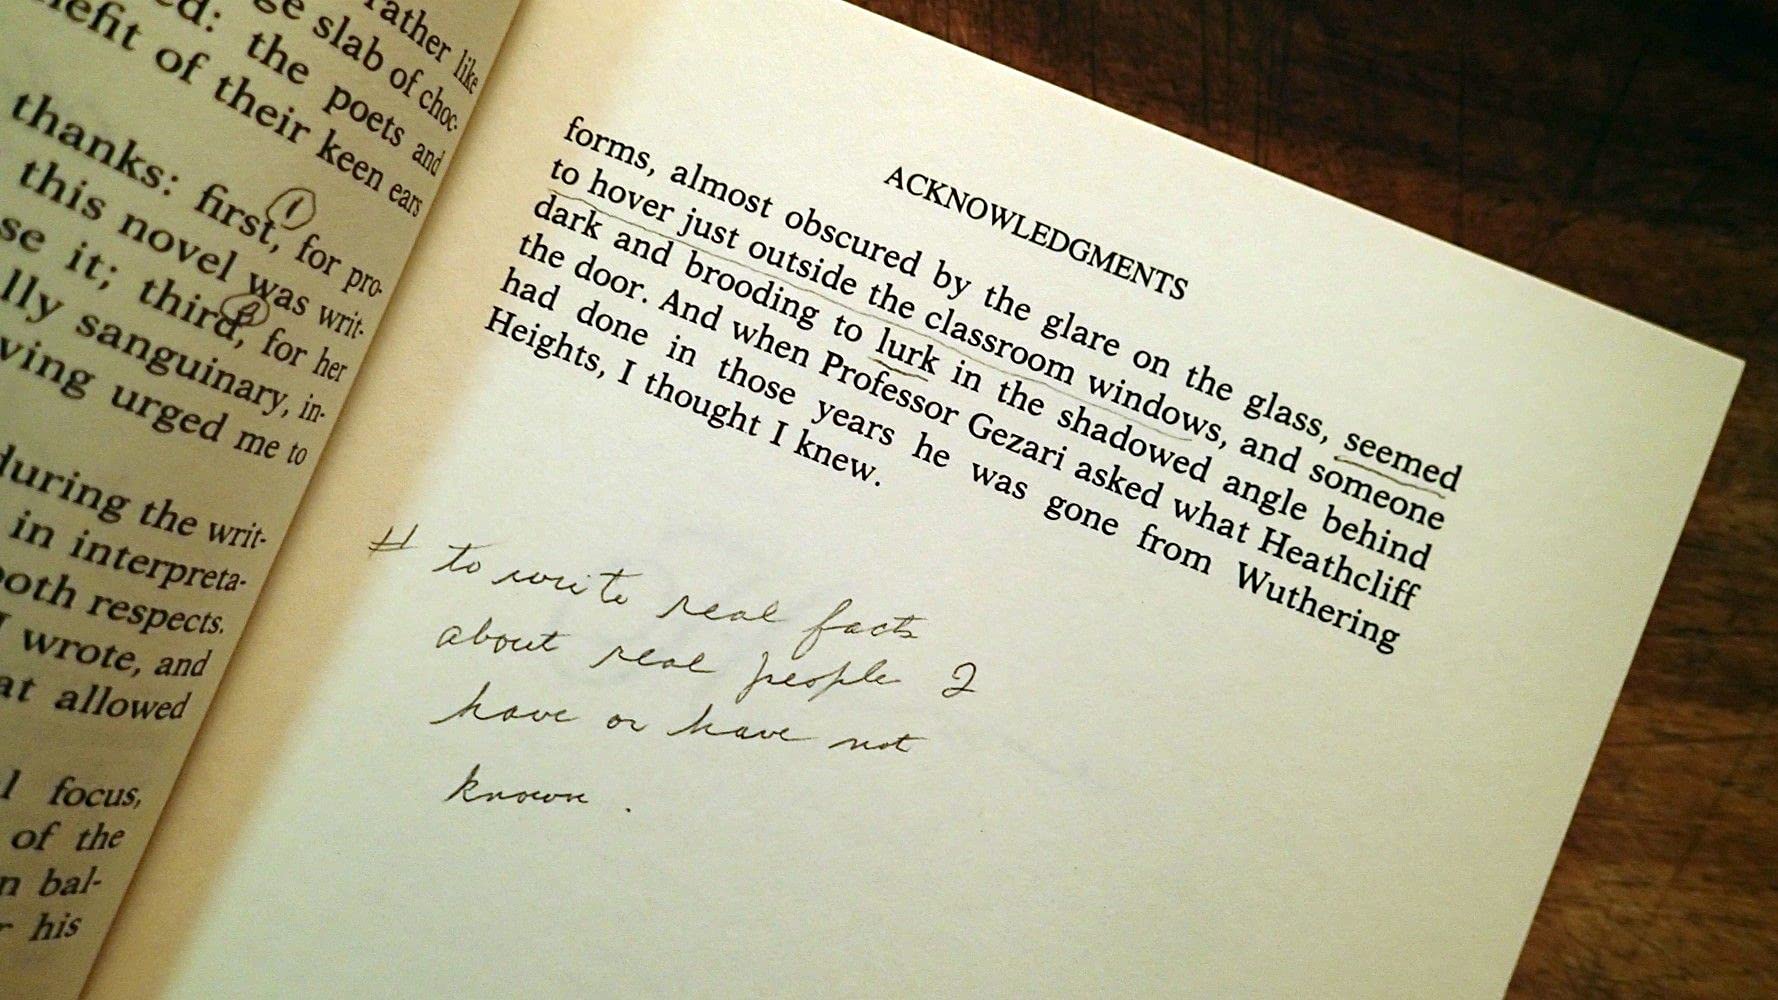 rather like
ge slab of choc-
ed: the poets and
nefit of their keen ears
thanks: first, for pro-
1
this novel was writ-
se it; third, for her
2
lly sanguinary, in-
ving urged me to
during the writ-
in interpreta-
both respects.
I wrote, and
at allowed
l focus,
of the
n bal-
r his
ACKNOWLEDGMENTS
forms, almost obscured by the glare on the glass, seemed
to hover just outside the classroom windows, and someone
dark and brooding to lurk in the shadowed angle behind
the door. And when Professor Gezari asked what Heathcliff
had done in those years he was gone from Wuthering
Heights, I thought I knew.
# to write real facts
about real people I
have or have not
known.